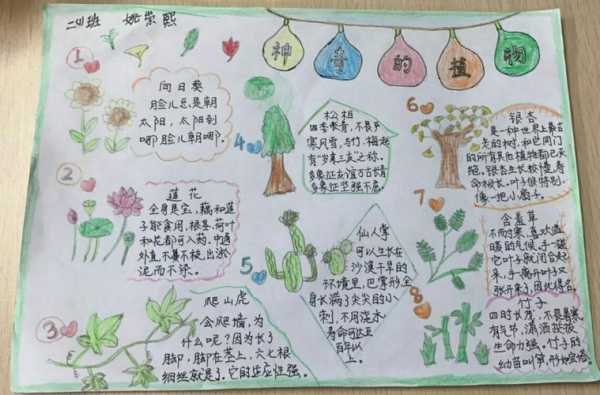 二(1)班 姚荣熙
神奇的植物
1
向日葵
脸儿总是朝
太阳，太阳到
哪脸儿朝哪。
2
莲花
全身是宝，藕和莲
子能食用，根茎、荷叶
和花都可入药，中通
外直，不蔓不枝，出淤
泥而不染。
3
爬山虎
会爬墙，为
什么呢？因为长了
脚，脚在茎上，六七根
细丝就是了。它的适应性强。
4
松柏
四季常青，不畏严
寒风雪，与竹、梅起
有"岁寒三友"之称。
多象征友谊百古情
多象征坚强不屈。
5
仙人掌
可以生长在
沙漠干旱的
环境里，巴掌形全
身长满了尖尖的小
刺，不用浇水，
寿命可达
百年以
上。
6
银杏
是一种世界上最古
老的树，和它同门
的所有其他植物都已灭
绝。银杏生长较慢，寿
命极长，叶子很特别，
像一把小扇子。
7
含羞草
不耐寒，喜欢温
暖的气候，手一碰
它叶子就闭合起
来，手离开叶子又
张开来，因此得名。
8
竹子
四时长茂，不畏暑寒
有气节，潇洒挺拔
生命力强。竹子的
幼苗叫笋，